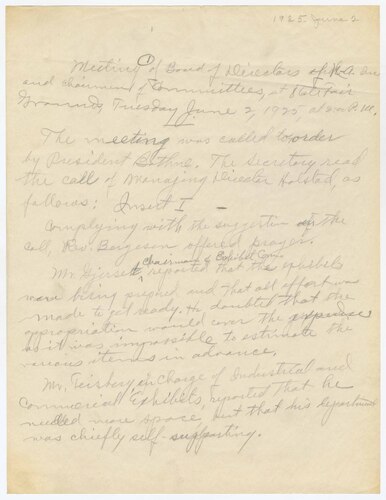 1925 June 2
Meeting of Board of Directors of N.A.
and chairmen of Committees, at State Fair
Grounds, Tuesday June 2, 1925, at P.M.
The meeting was called to order
by President Bothne. The Secretary read
the call of Managing Director Holstad, as
follows: Insert I —
Complying with the suggestion of the
call, Rev. Borgeson offered prayer.
Chairman of Exhibit Com.
Mr. Gjerset, reported that the exhibits
were being prepared and that all effort was
made to get ready. He doubted that the
appropriation would cover the expense
as it was impossible to estimate the
various items in advance.
Mr. in charge of Industrial and
Commercial Exhibits, reported that he
needed more space, but that his department
was chiefly self-supporting.